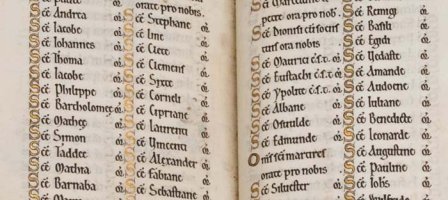 Sce Andrea or
Sce Iacobe or
Sce Iohannes or
Sce Thoma or
Sce Iacobe or
Sce Philippe or
Sce Bartholomee or
Sce Mathee or
Sce Simon or
Sce Taddee or
Sce Mathia or
Sce Barnaba or
orate pro nobis.
Sce Stephane or
Sce Line or
Sce Clete or
Sce Clemens or
Sce Syxte or
Sce Corneli or
Sce Cipriane or
Sce Laurenti or
Sce Vincenti or
Sce Alexander or
Sce Fabiane or
Sce Sebastiane or
orate pro nobis.
Sce Dionisi cu soc
tuis ora nobis
Sce Maurici c.s.t. or
Sce Eustachi c.s.t. or
Sce Ypolite c.s.t. or
Sce Albane or
Sce Osuualde or
Sce Edmunde or
Omnes sci martires
orate pro nobis
Sce Siluester or
Sce Remigi or
Sce Basili or
Sce Egidi or
Sce Uedaste or
Sce Amande or
Sce Audoene or
Sce Iuliane or
Sce Benedicte or
Sce Leonarde or
Sce Augustine or
Sce Pauline or
Sce Iohs or